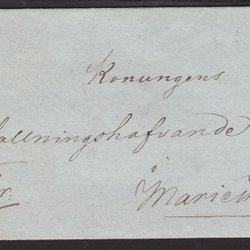 Konungens
allningshafvande
i
Marie